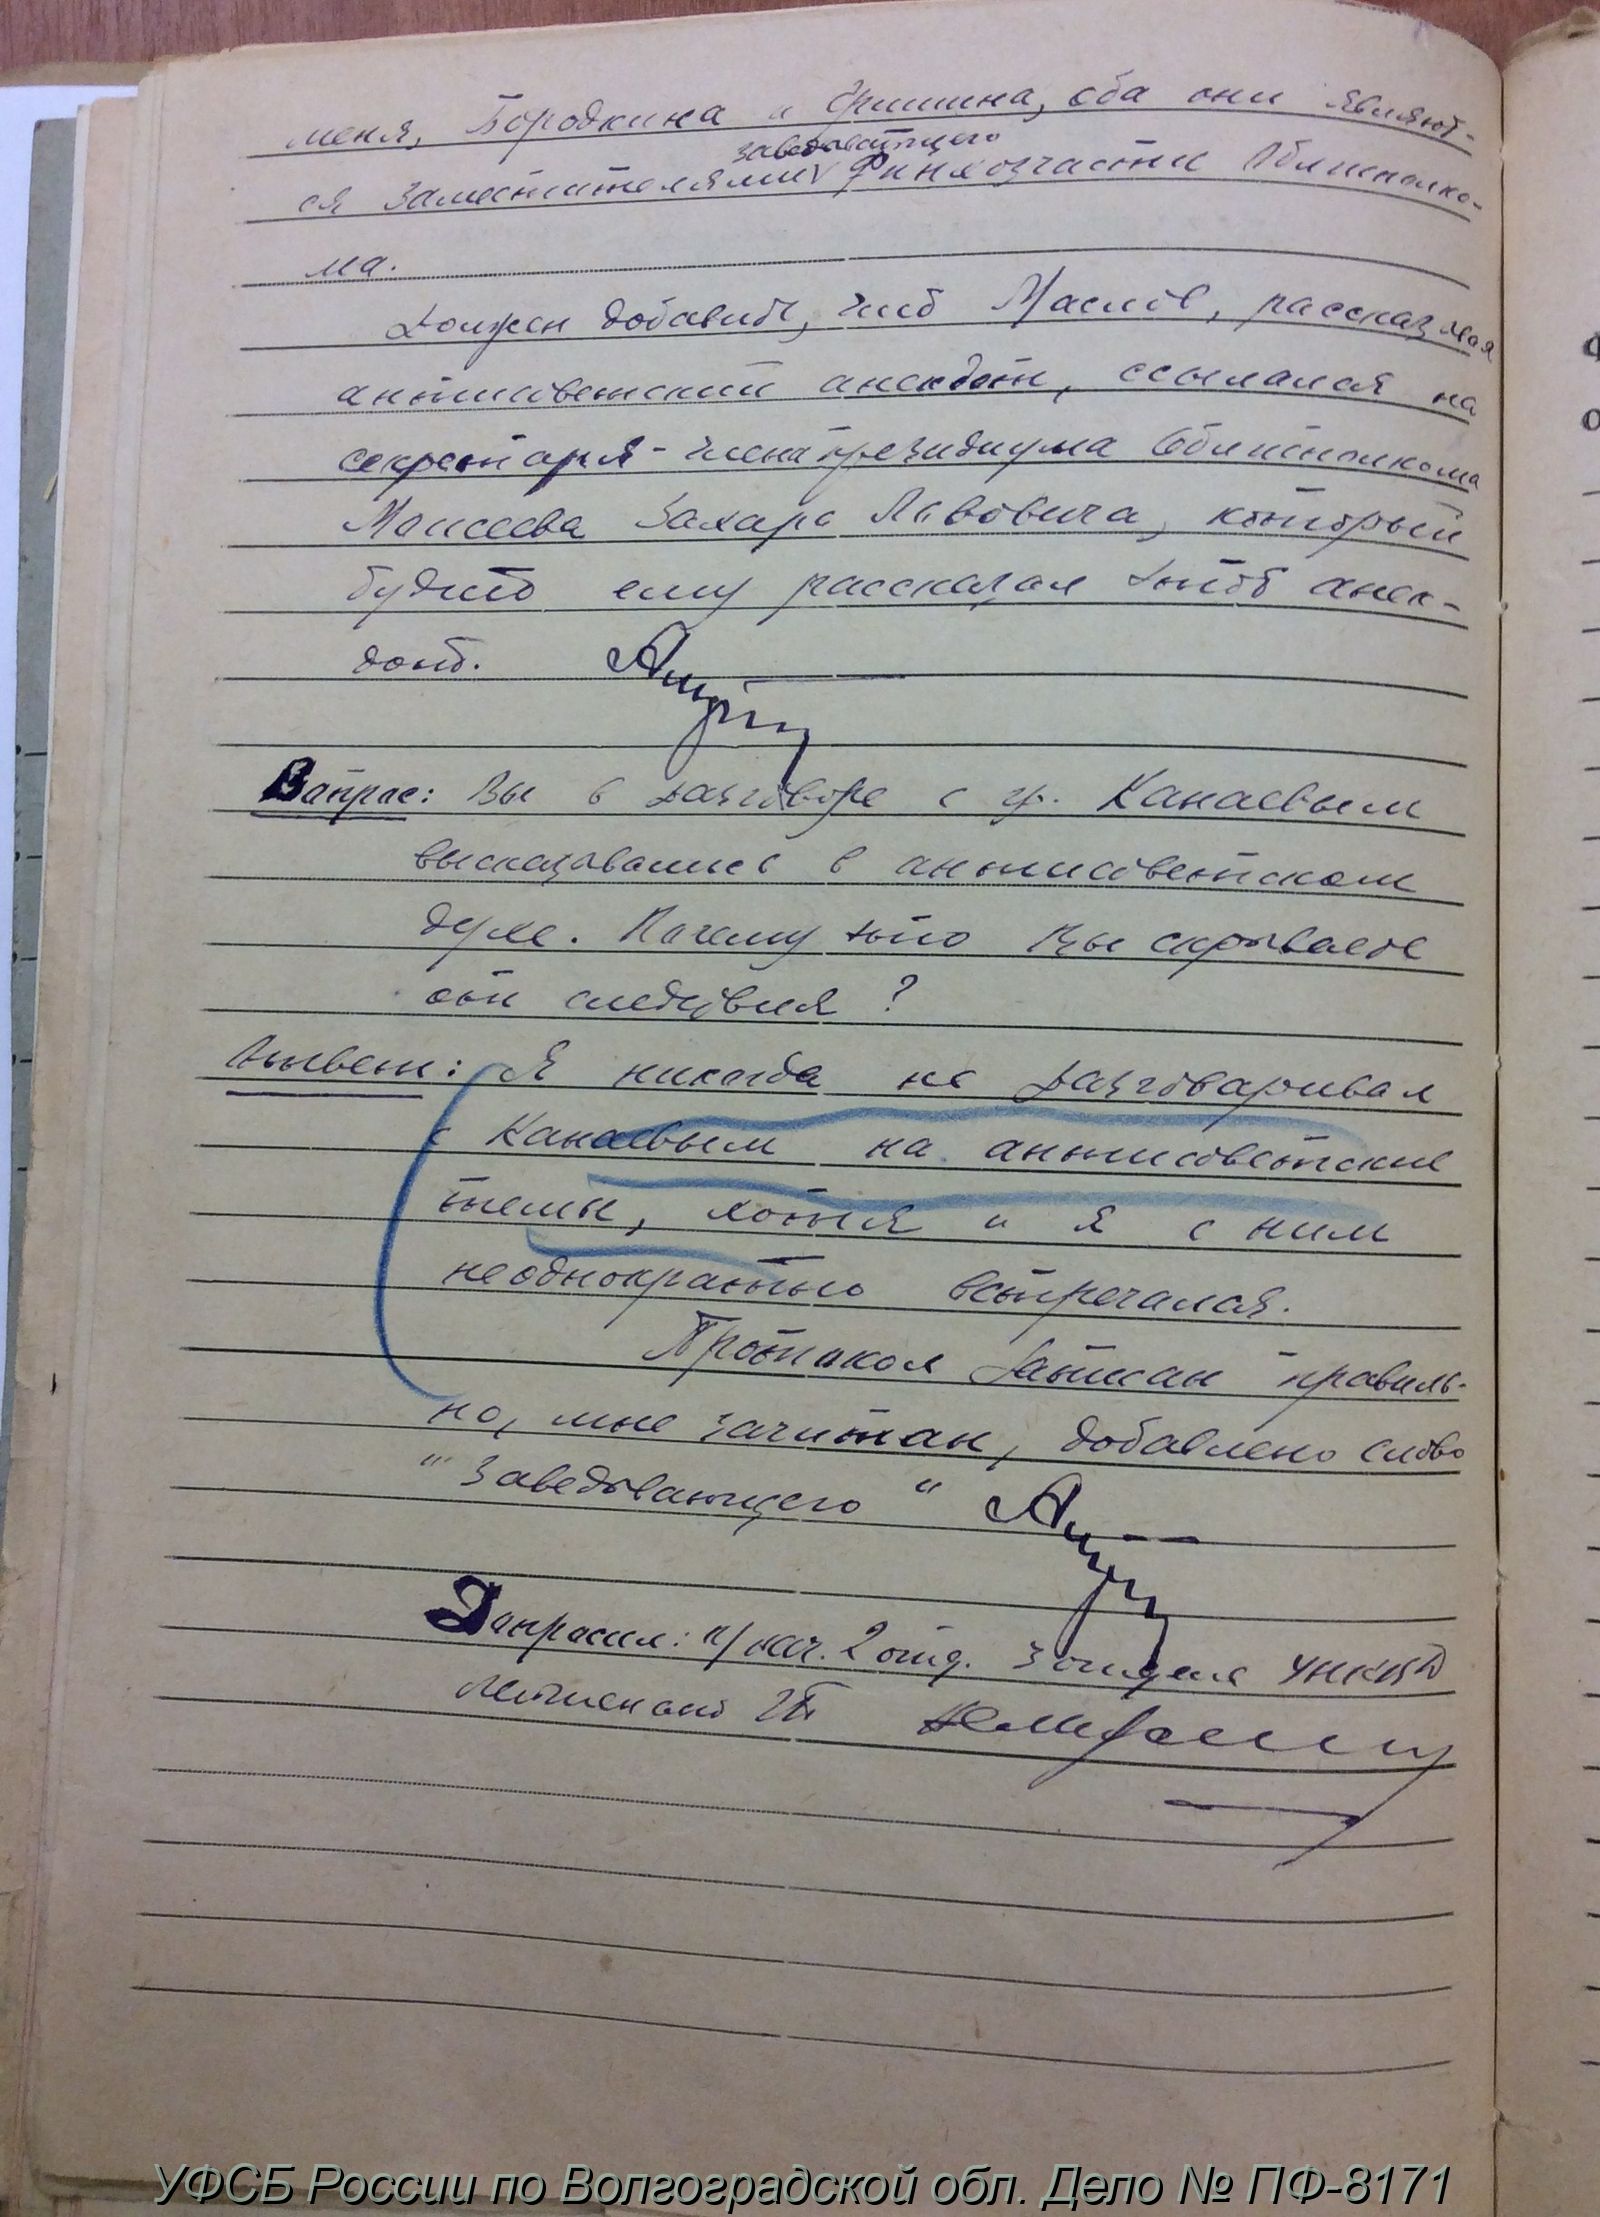 меня, Бородкина и Гришина, оба они являют-
заведывающего
ся заместителями Финхозчасти Облисполко-
ма.
Должен добавить, что Маслов, рассказывая
антисоветский анекдот, ссылался на
секретаря - члена президиума Облисполкома
Моисеева Захара Львовича, который
будто ему рассказал этот анек-
дот.
Вопрос: Вы в разговоре с гр. Канаевым
высказывались в антисоветском
духе. Почему это Вы скрываете
от следствия?
Ответ: Я никогда не разговаривал
с Канаевым на антисоветские
темы, хотя и я с ним
неоднократно встречался.
Протокол записан правиль-
но, мне зачитан, добавлено слово
"Заведывающего"
Допросил: п/нач. 2 отд. 3 отдела УНКВД
лейтенант ГБ
УФСБ России по Волгоградской обл. Дело № ПФ-8171